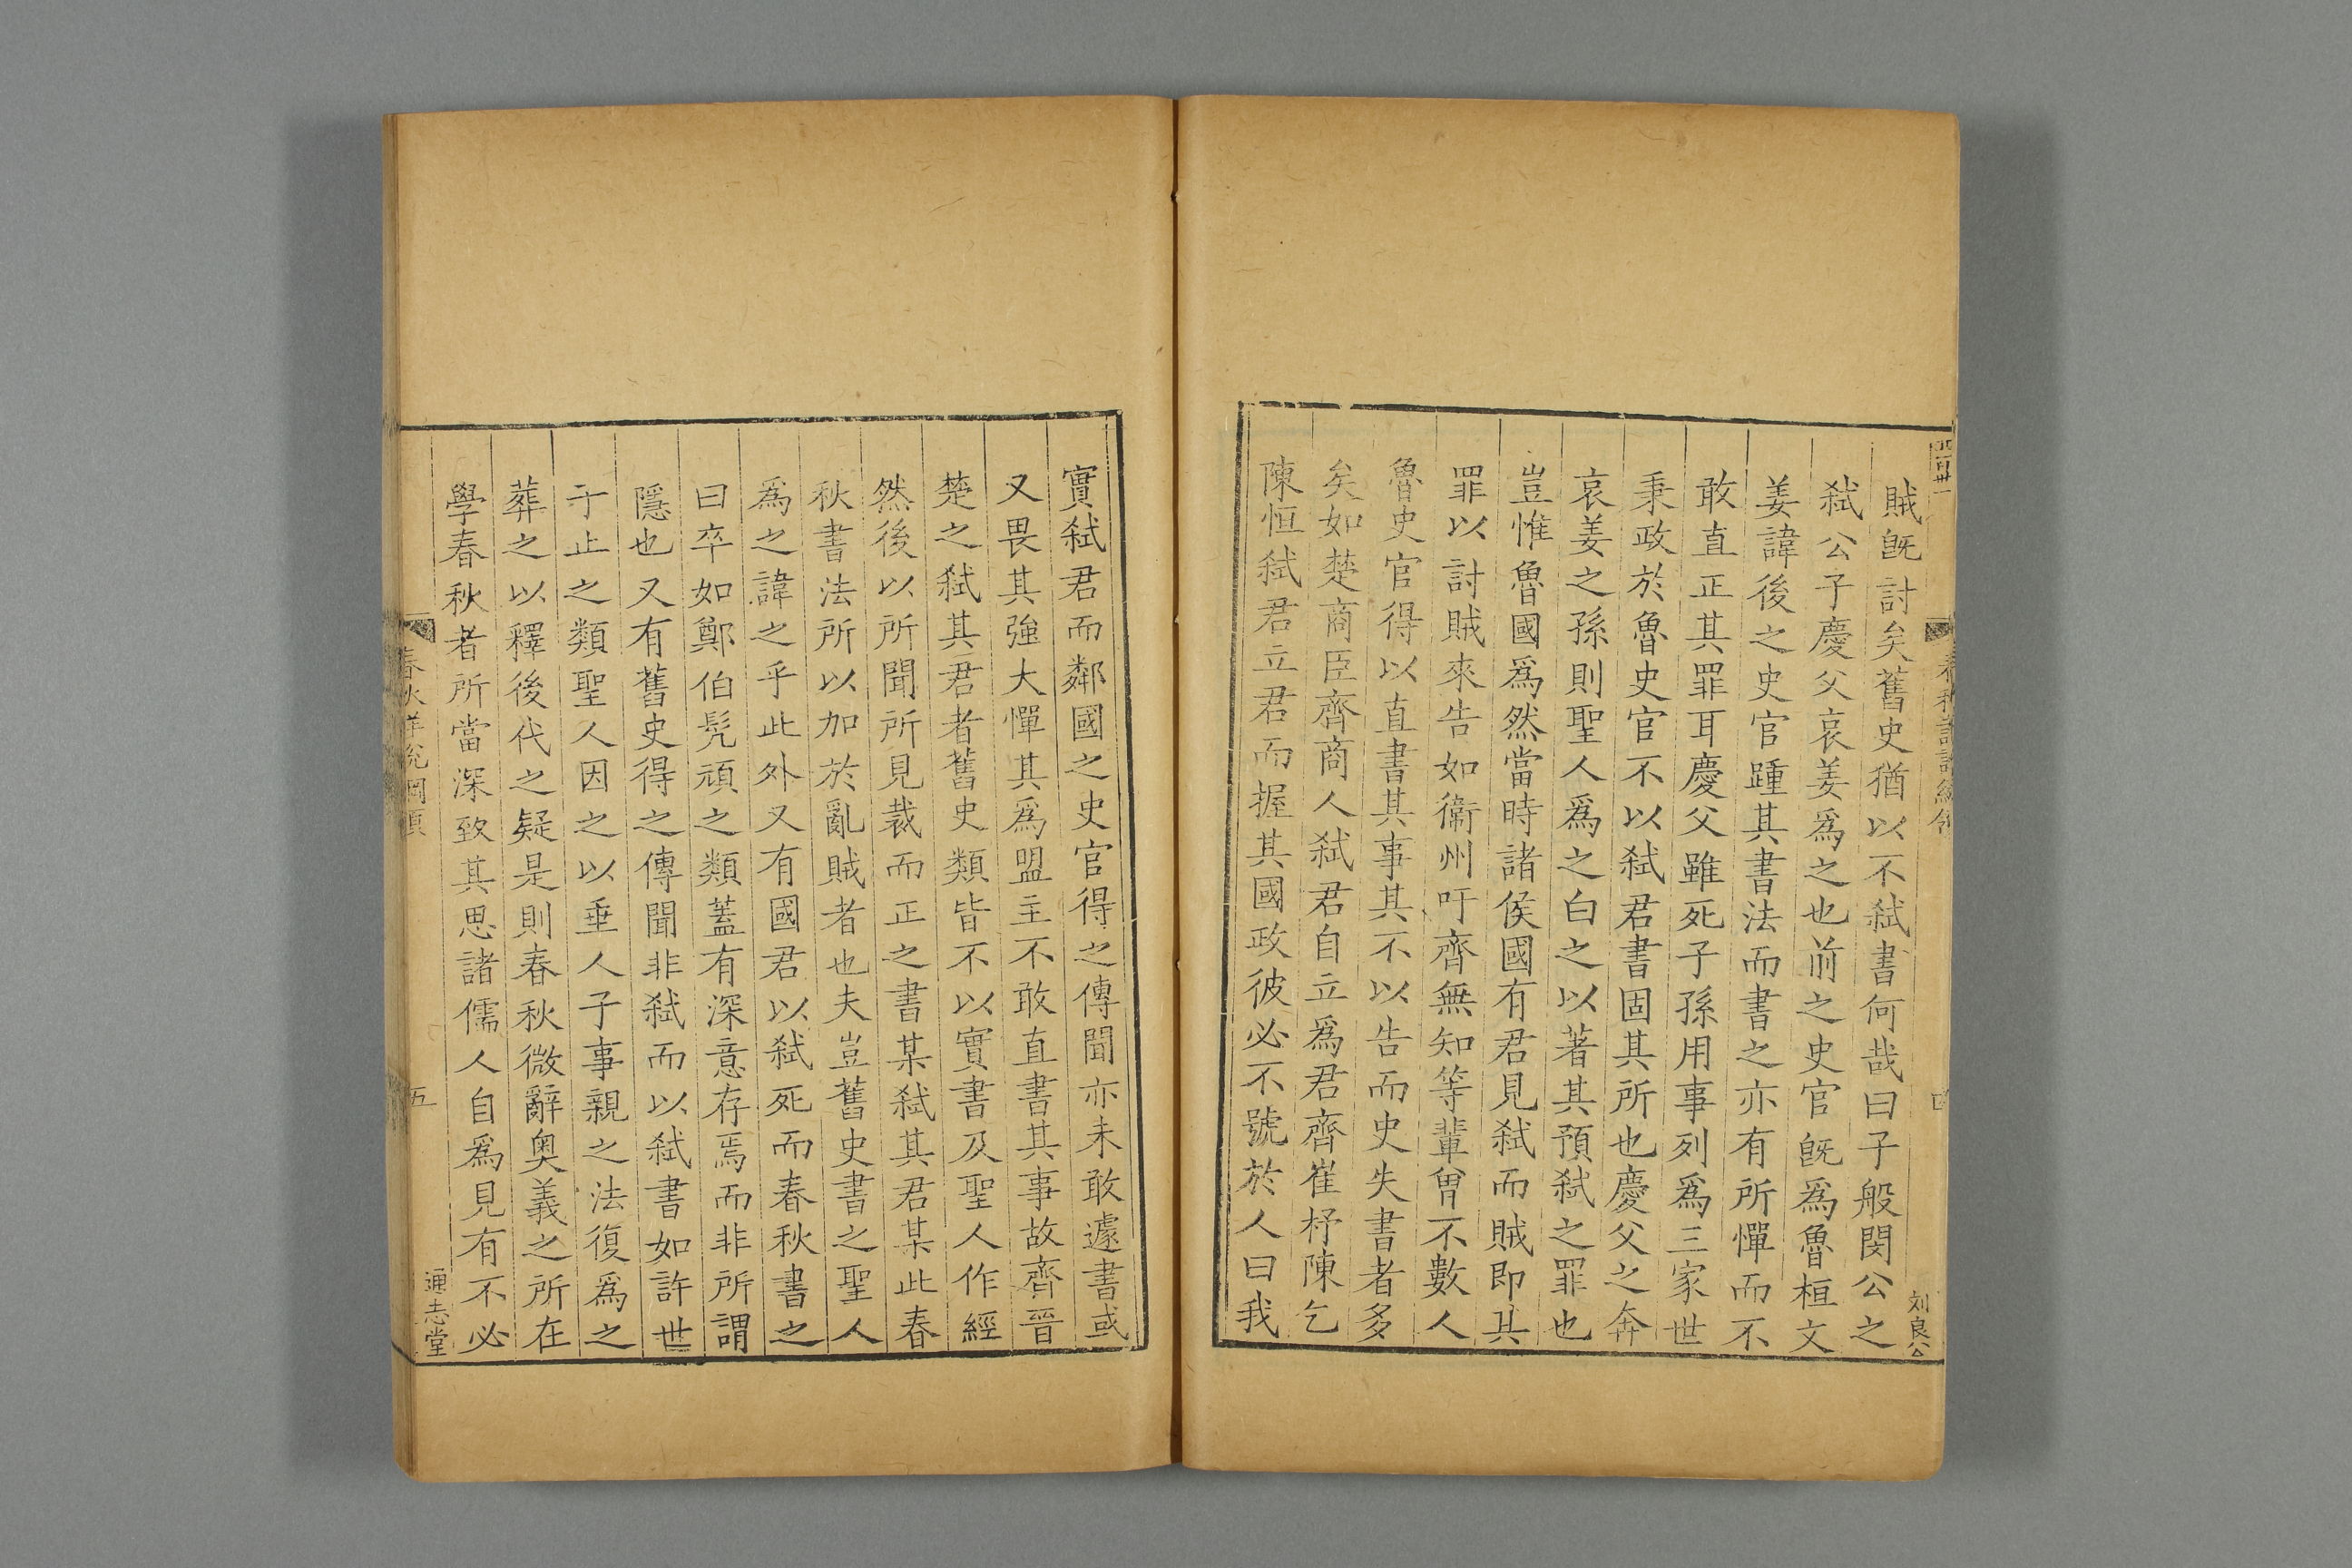 賊既討矣舊史猶以不弑書何哉曰子般閔公之
弑公子慶父哀姜爲之也前之史官既爲魯桓文
姜諱後之史官踵其書法而書之亦有所憚而不
敢直正其罪耳慶父雖死子孫用事列爲三家世
秉政於魯史官不以弑君書固其所也慶父之奔
哀姜之孫則聖人爲之白之以著其預弑之罪也
豈惟魯國爲然當時諸侯國有君見弑而賊即其
罪以討賊來告如衞州吁齊無知等輩曾不數人
魯史官得以直書其事其不以告而史失書者多
矣如楚商臣齊商人弑君自立爲君齊崔杼陳乞
陳恒弑君立君而握其國政彼必不號於人曰我
刘良公
實弑君而鄰國之史官得之傳聞亦未敢遽書或
又畏其強大憚其爲盟主不敢直書其事故齊晉
楚之弑其君者舊史類皆不以實書及聖人作經
然後以所聞所見裁而正之書某弑其君某此春
秋書法所以加於亂賊者也夫豈舊史書之聖人
爲之諱之乎此外又有國君以弑死而春秋書之
曰卒如鄭伯髠頑之類蓋有深意存焉而非所謂
隱也又有舊史得之傳聞非弑而以弑書如許世
子止之類聖人因之以垂人子事親之法復爲之
葬之以釋後代之疑是則春秋微辭奧義之所在
學春秋者所當深致其思諸儒人自爲見有不必
五
通志堂